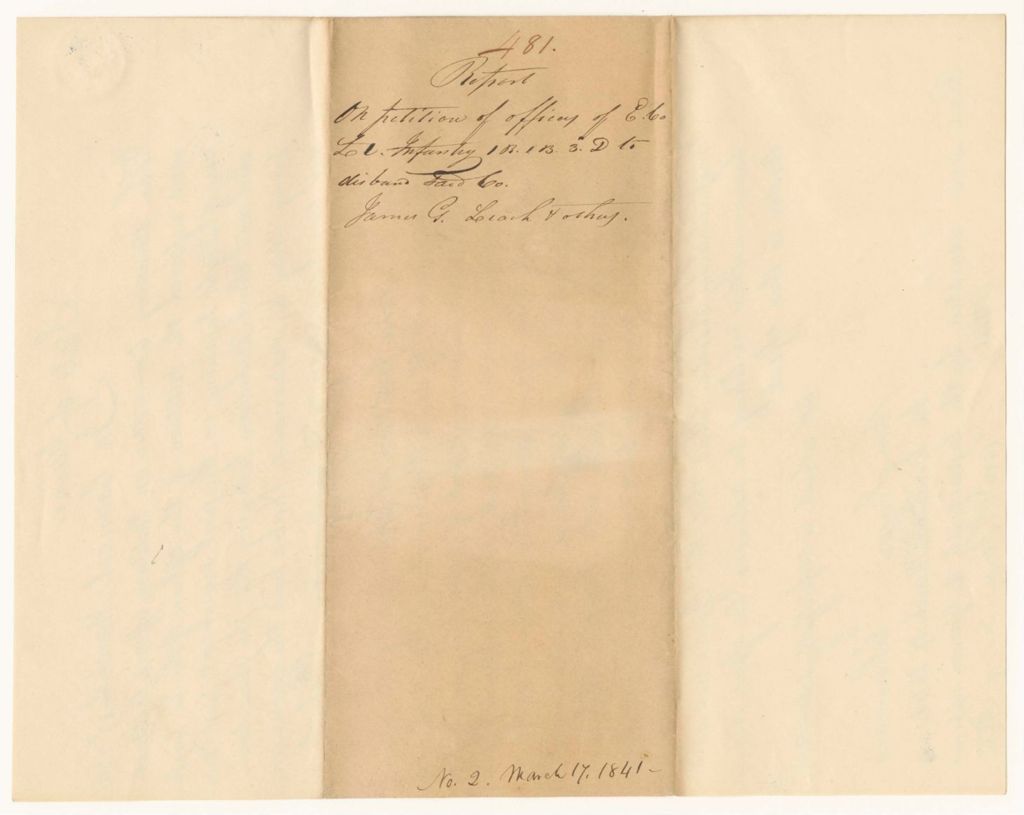 481.
Report
On petition of officers of E. Co
Lt. Infantry 1 R. 1 B. 3. D to
disband Said Co.
James G. Leach & others.
No. 2. March 17. 1841-